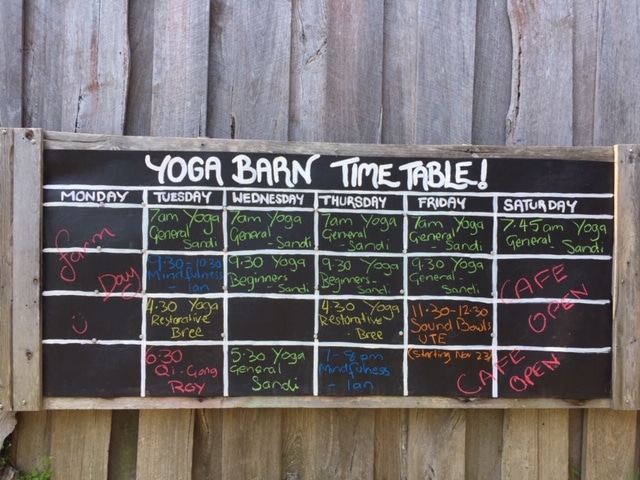 YOGA BARN TIME TABLE!
MONDAY TUESDAY WEDNESDAY THURSDAY FRIDAY SATURDAY
farm
Day
7am Yoga
General
- Sandi
7am Yoga
General
- Sandi
7am Yoga
General
- Sandi
7am Yoga
General
- Sandi
7.45am Yoga
General - Sandi
9:30-10:30
Mindfulness
- Ian
9.30 Yoga
Beginners
- Sandi
9.30 Yoga
Beginners-
- Sandi
9.30 Yoga
General -
Sandi
CAFE
OPEN
4.30 Yoga
Restorative
Bree
4.30 Yoga
Restorative
- Bree
11.30-12.30
Sound Bowls
UTE
(Starting Nov 23)
6:30
Qi-Gong
Roy
5:30 Yoga
General
Sandi
7-8pm
Mindfulness
- Ian
CAFE
OPEN